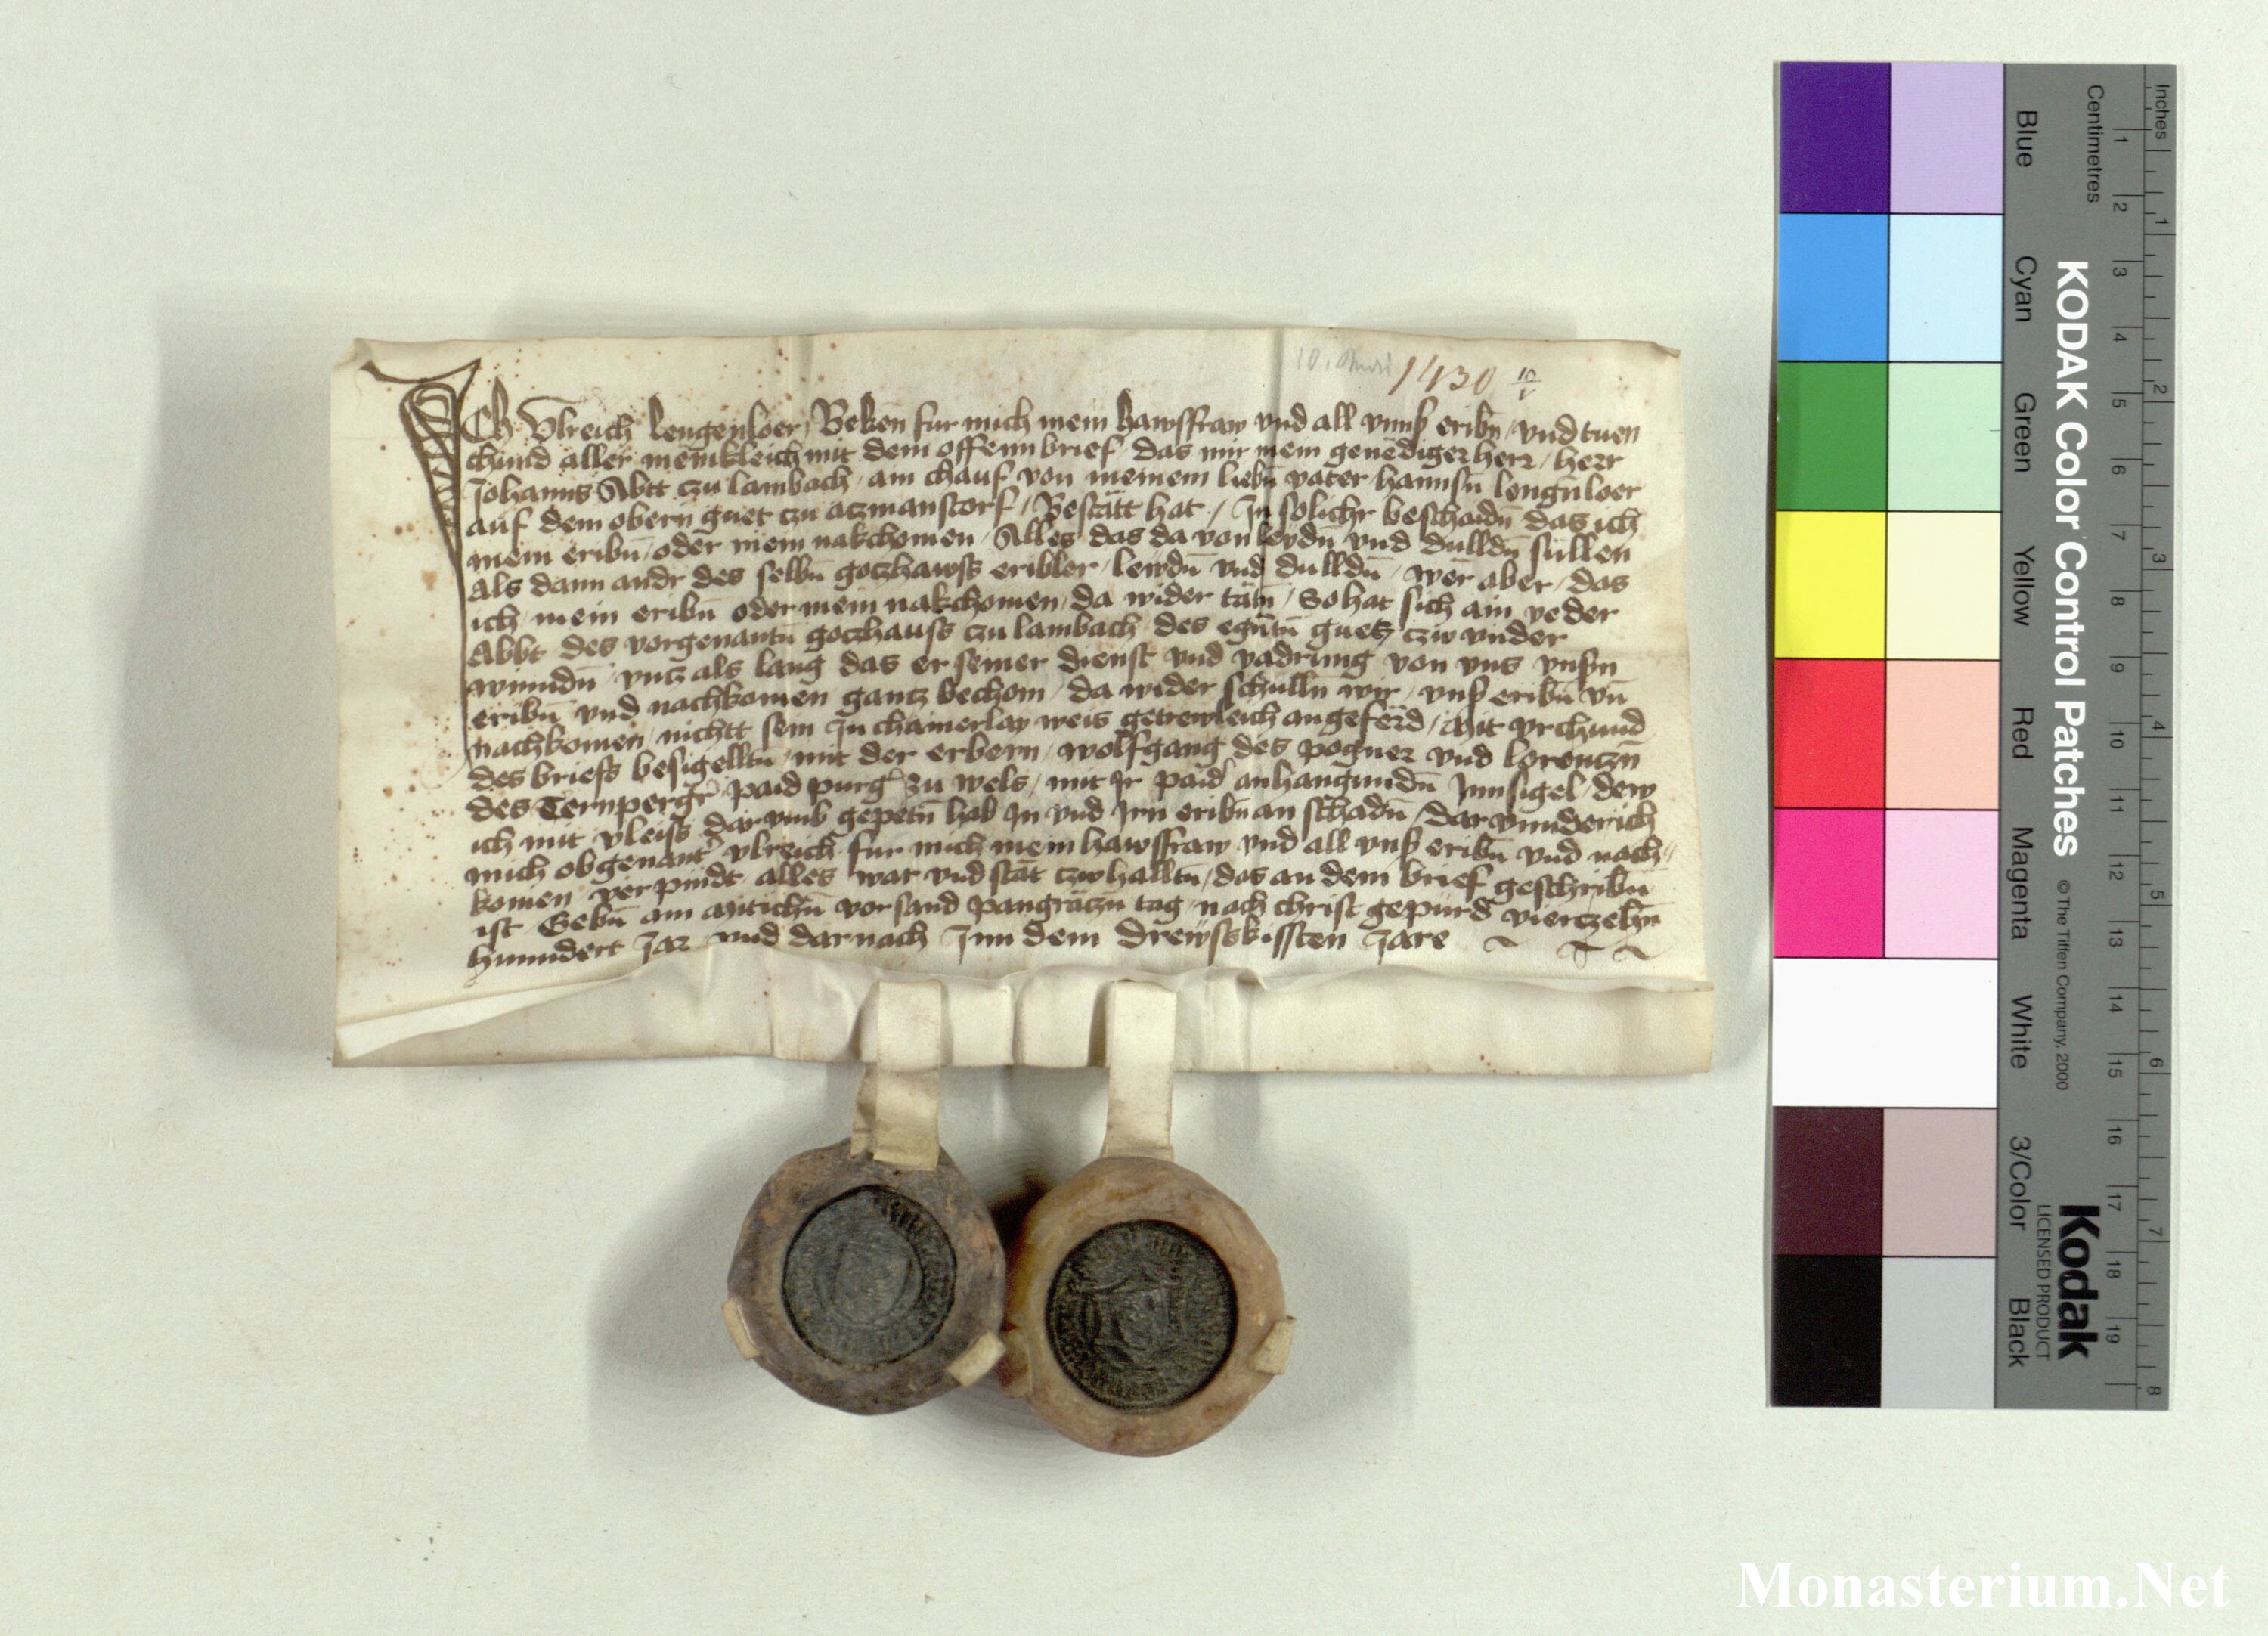 10. Mai 1430 10/V
ICh Vlreich Lengenloer Beken fur mich mein hawsfraw vnd all vnnß eribn̄ vnd tuen
chund aller menikleich mit dem offenn brief das mir mein genediger herr herr
Johanns Abtt czu lambach ain chauf von meinem liebn̄ vater hannsn̄ lengn̄loer
auf dem obern guet czu aczmanstorf Bestätt hat / Jn solichr beschaidn̄ das ich
mein eribn̄ oder mein nakchomen Alles das da von leydn̄ vnd dulldn̄ sullen
als dann andr des selbn̄ goczhawss eribler lewdn̄ vnd dulldn̄ wer aber das
ich mein eribn̄ oder mein nakchomen da wider tätn̄ So hat sich ain yeder
Abbt des vorgenantn̄ goczhauss czu lambach des egn̄tn̄ guetz czw vnder
wnndn̄ vncz als lang das er seiner dienst vnd vadrung von vns vnsn̄
eribn̄ vnd nachkomen gantz bechom da wider schulln̄ wir vnß eribn̄ vn̄
nachkomen nichtt sein Jn chainerlay weis getrewleich angeferd Mit vrchund
des briefs besigelltn̄ mit der erbern wolfgang des pogner vnd lorentzn̄
des Ternpergr̄ paid purg̕ zu wels mit Jr paid̕ anhangundn̄ Jnnsigel dew
ich mit vleiss darvmb gepetn̄ hab Jn vnd Jrn eribn̄ an schadn̄ Darvnnderich
mich obgenant̕ vlreich fur mich mein hawsfraw vnd all vnß eribn̄ vnd nach
komen verpindt alles war vnd stät czwhalltn̄ das an dem brief geschribn̄
ist Gebn̄ am Mitichn̄ vor sand Pangräczn̄ tag nach christ gepurd vierczehn̄
hunndert Jar vnd darnach Jnn dem Drewsskissten Jare
KODAK Color Control Patches © The Tiffen Company, 2000 Kodak
LICENSED PRODUCT
Inches 1 2 3 4 5 6 7 8
Centimetres 1 2 3 4 5 6 7 8 9 10 11 12 13 14 15 16 17 18 19
Blue Cyan Green Yellow Red Magenta White 3/Color Black
Monasterium.Net